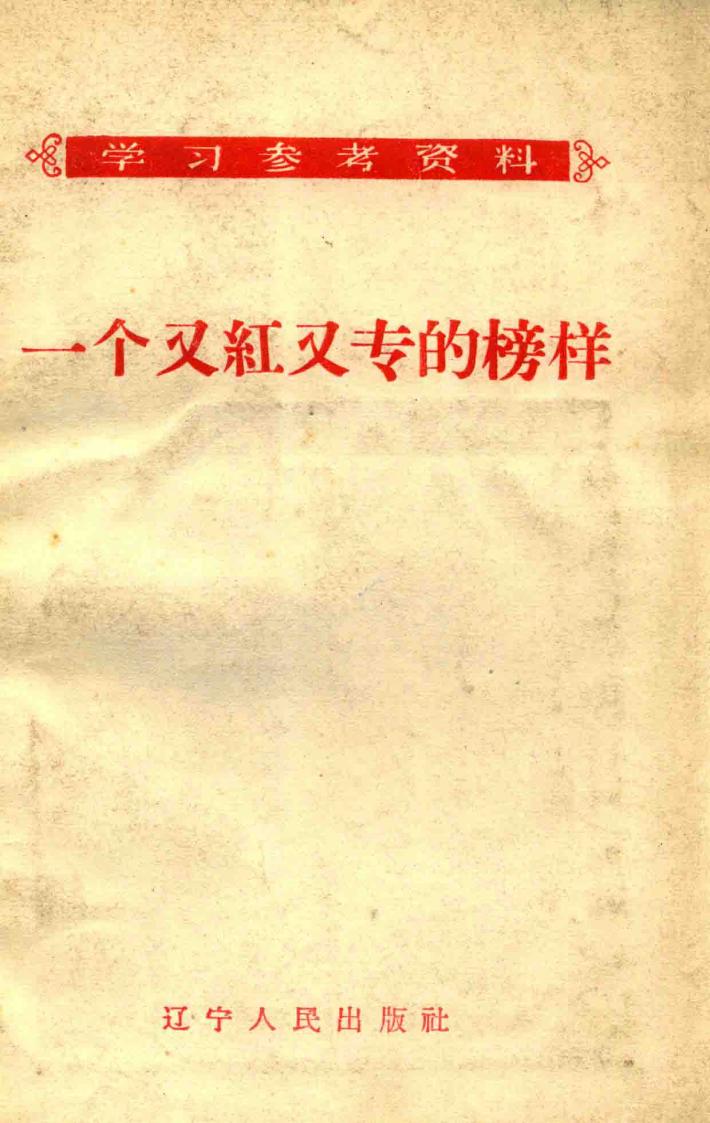 学习参考资料
一个又紅又专的榜样
辽宁人民出版社